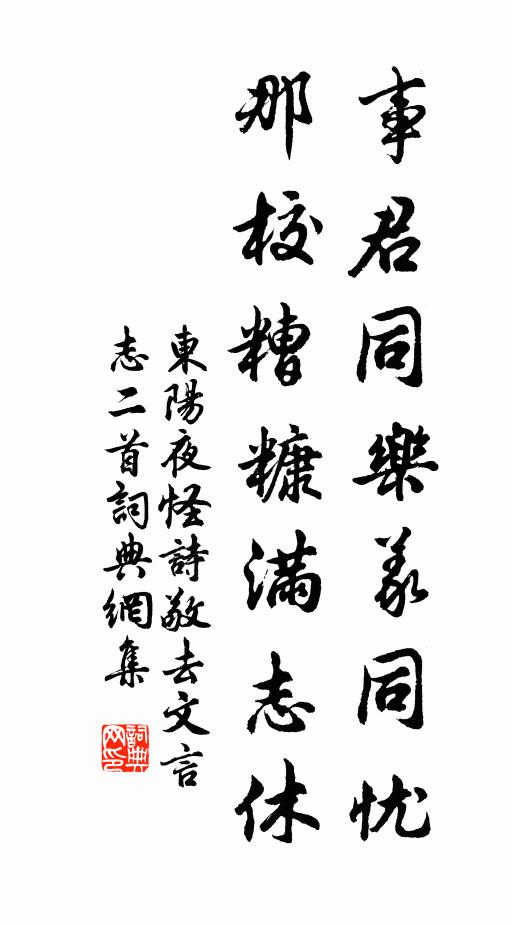 事君同樂義同忧
那校糟糠滿志休
東陽夜怪詩敬去文言
志二首詞典網集
詞典
网印